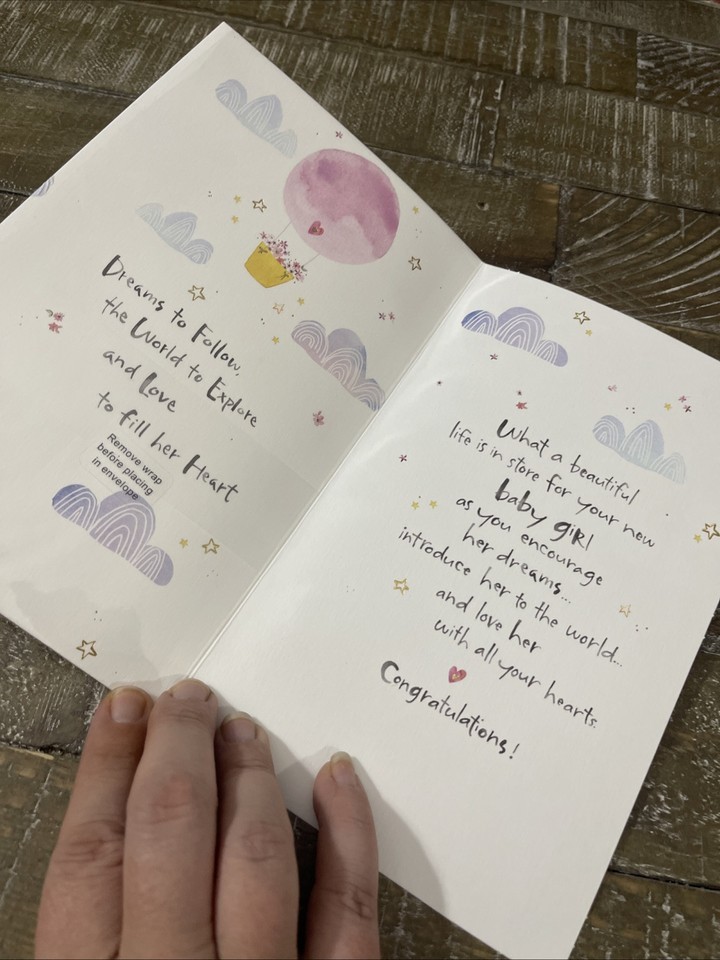 Dreams to Follow,
the World to Explore
and Love
to fill her Heart
Remove wrap
before placing
in envelope
What a beautiful
life is in store for your new
baby girl
as you encourage
her dreams...
introduce her to the world...
and love her
with all your hearts.
Congratulations!